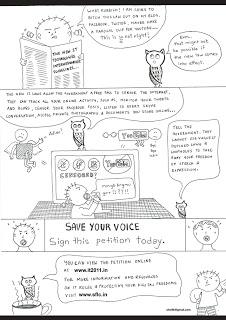 WHAT RUBBISH! I AM GOING TO
BITCH THIS LAW OUT ON MY BLOG,
FACEBOOK, TWITTER, MAYBE MAKE
A PARODY CLIP FOR YOUTUBE...
This is so not right!
THE NEW IT
INTERMEDIARIES
GUIDELINES...
Erm..
That might not
be possible if
the new law comes
into effect.
THE NEW IT LAWS ALLOW THE GOVERNMENT A FREE PASS TO CENSOR THE INTERNET.
THEY CAN TRACK ALL YOUR ONLINE ACTIVITY, SUCH AS, MONITOR YOUR TWEETS
AND BLOGS, CENSOR YOUR FACEBOOK POSTS, LISTEN TO EVERY SKYPE
CONVERSATION, ACCESS PRIVATE PHOTOGRAPHS & DOCUMENTS YOU STORE ONLINE...
YouTube
CENSORED
TELL THE
GOVERNMENT, THEY
CANNOT USE VAGUELY
DEFINED LAWS &
LOOPHOLES TO TAKE
AWAY YOUR FREEDOM
OF SPEECH &
EXPRESSION.
SAVE YOUR VOICE
Sign this petition today.
YOU CAN VIEW THE PETITION ONLINE
AT www.it2011.in
FOR MORE INFORMATION AND RESOURCES
ON IT RULES & PROTECTING YOUR DIGITAL FREEDOMS
VISIT www.sflc.in